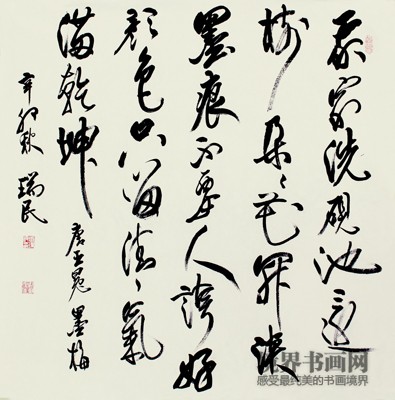 我家洗硯池邊
樹朵朵花開淡
墨痕不要人誇好
顏色只留清氣
滿乾坤
唐王冕墨梅
辛卯秋 瑞民
界书画网
感受最纯美的书画境界